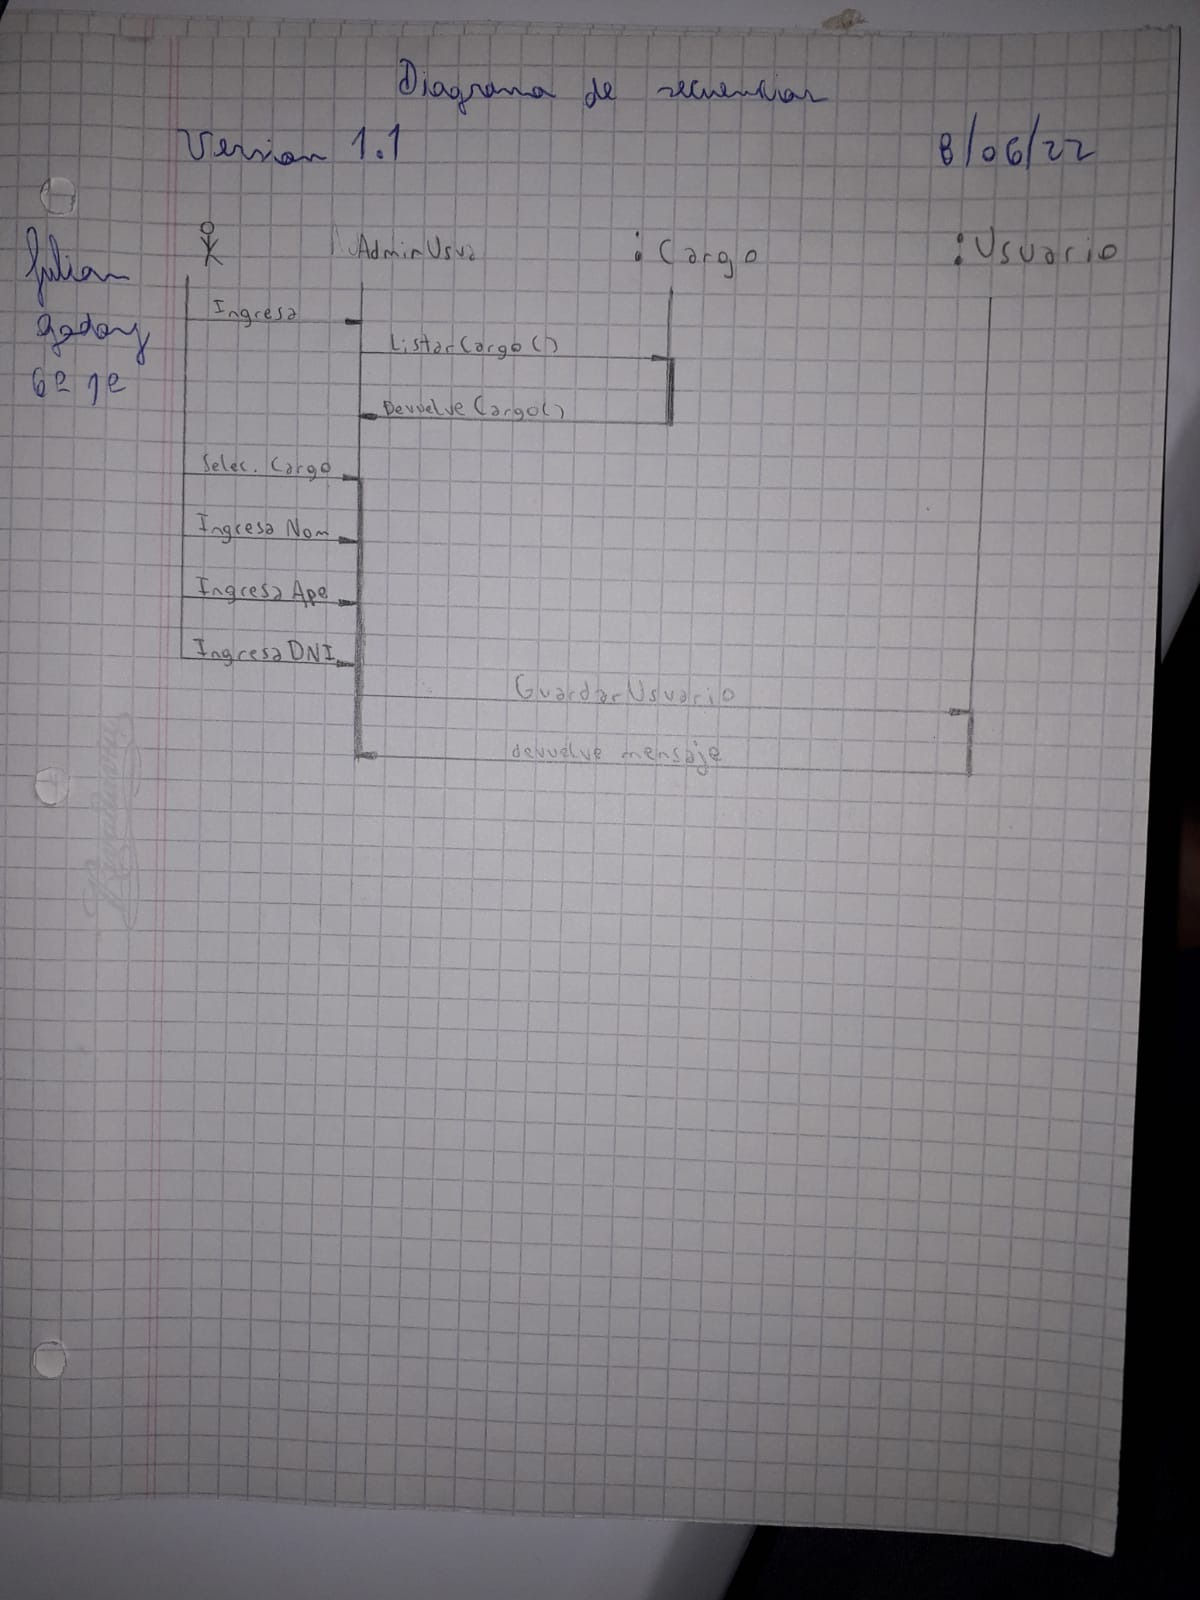 Diagrama de secuencias
Version 1.1
8/06/22
Julian
Godoy
6º 1º
:AdminUsua
: Cargo
:Usuario
Ingresa
ListarCargo()
Devuelve Cargo()
Selec. Cargo
Ingresa Nom
Ingresa Ape
Ingresa DNI
GuardarUsuario
devuelve mensaje